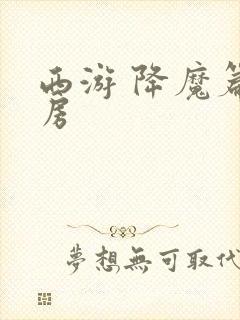 西游降魔篇
房
夢想無可取代